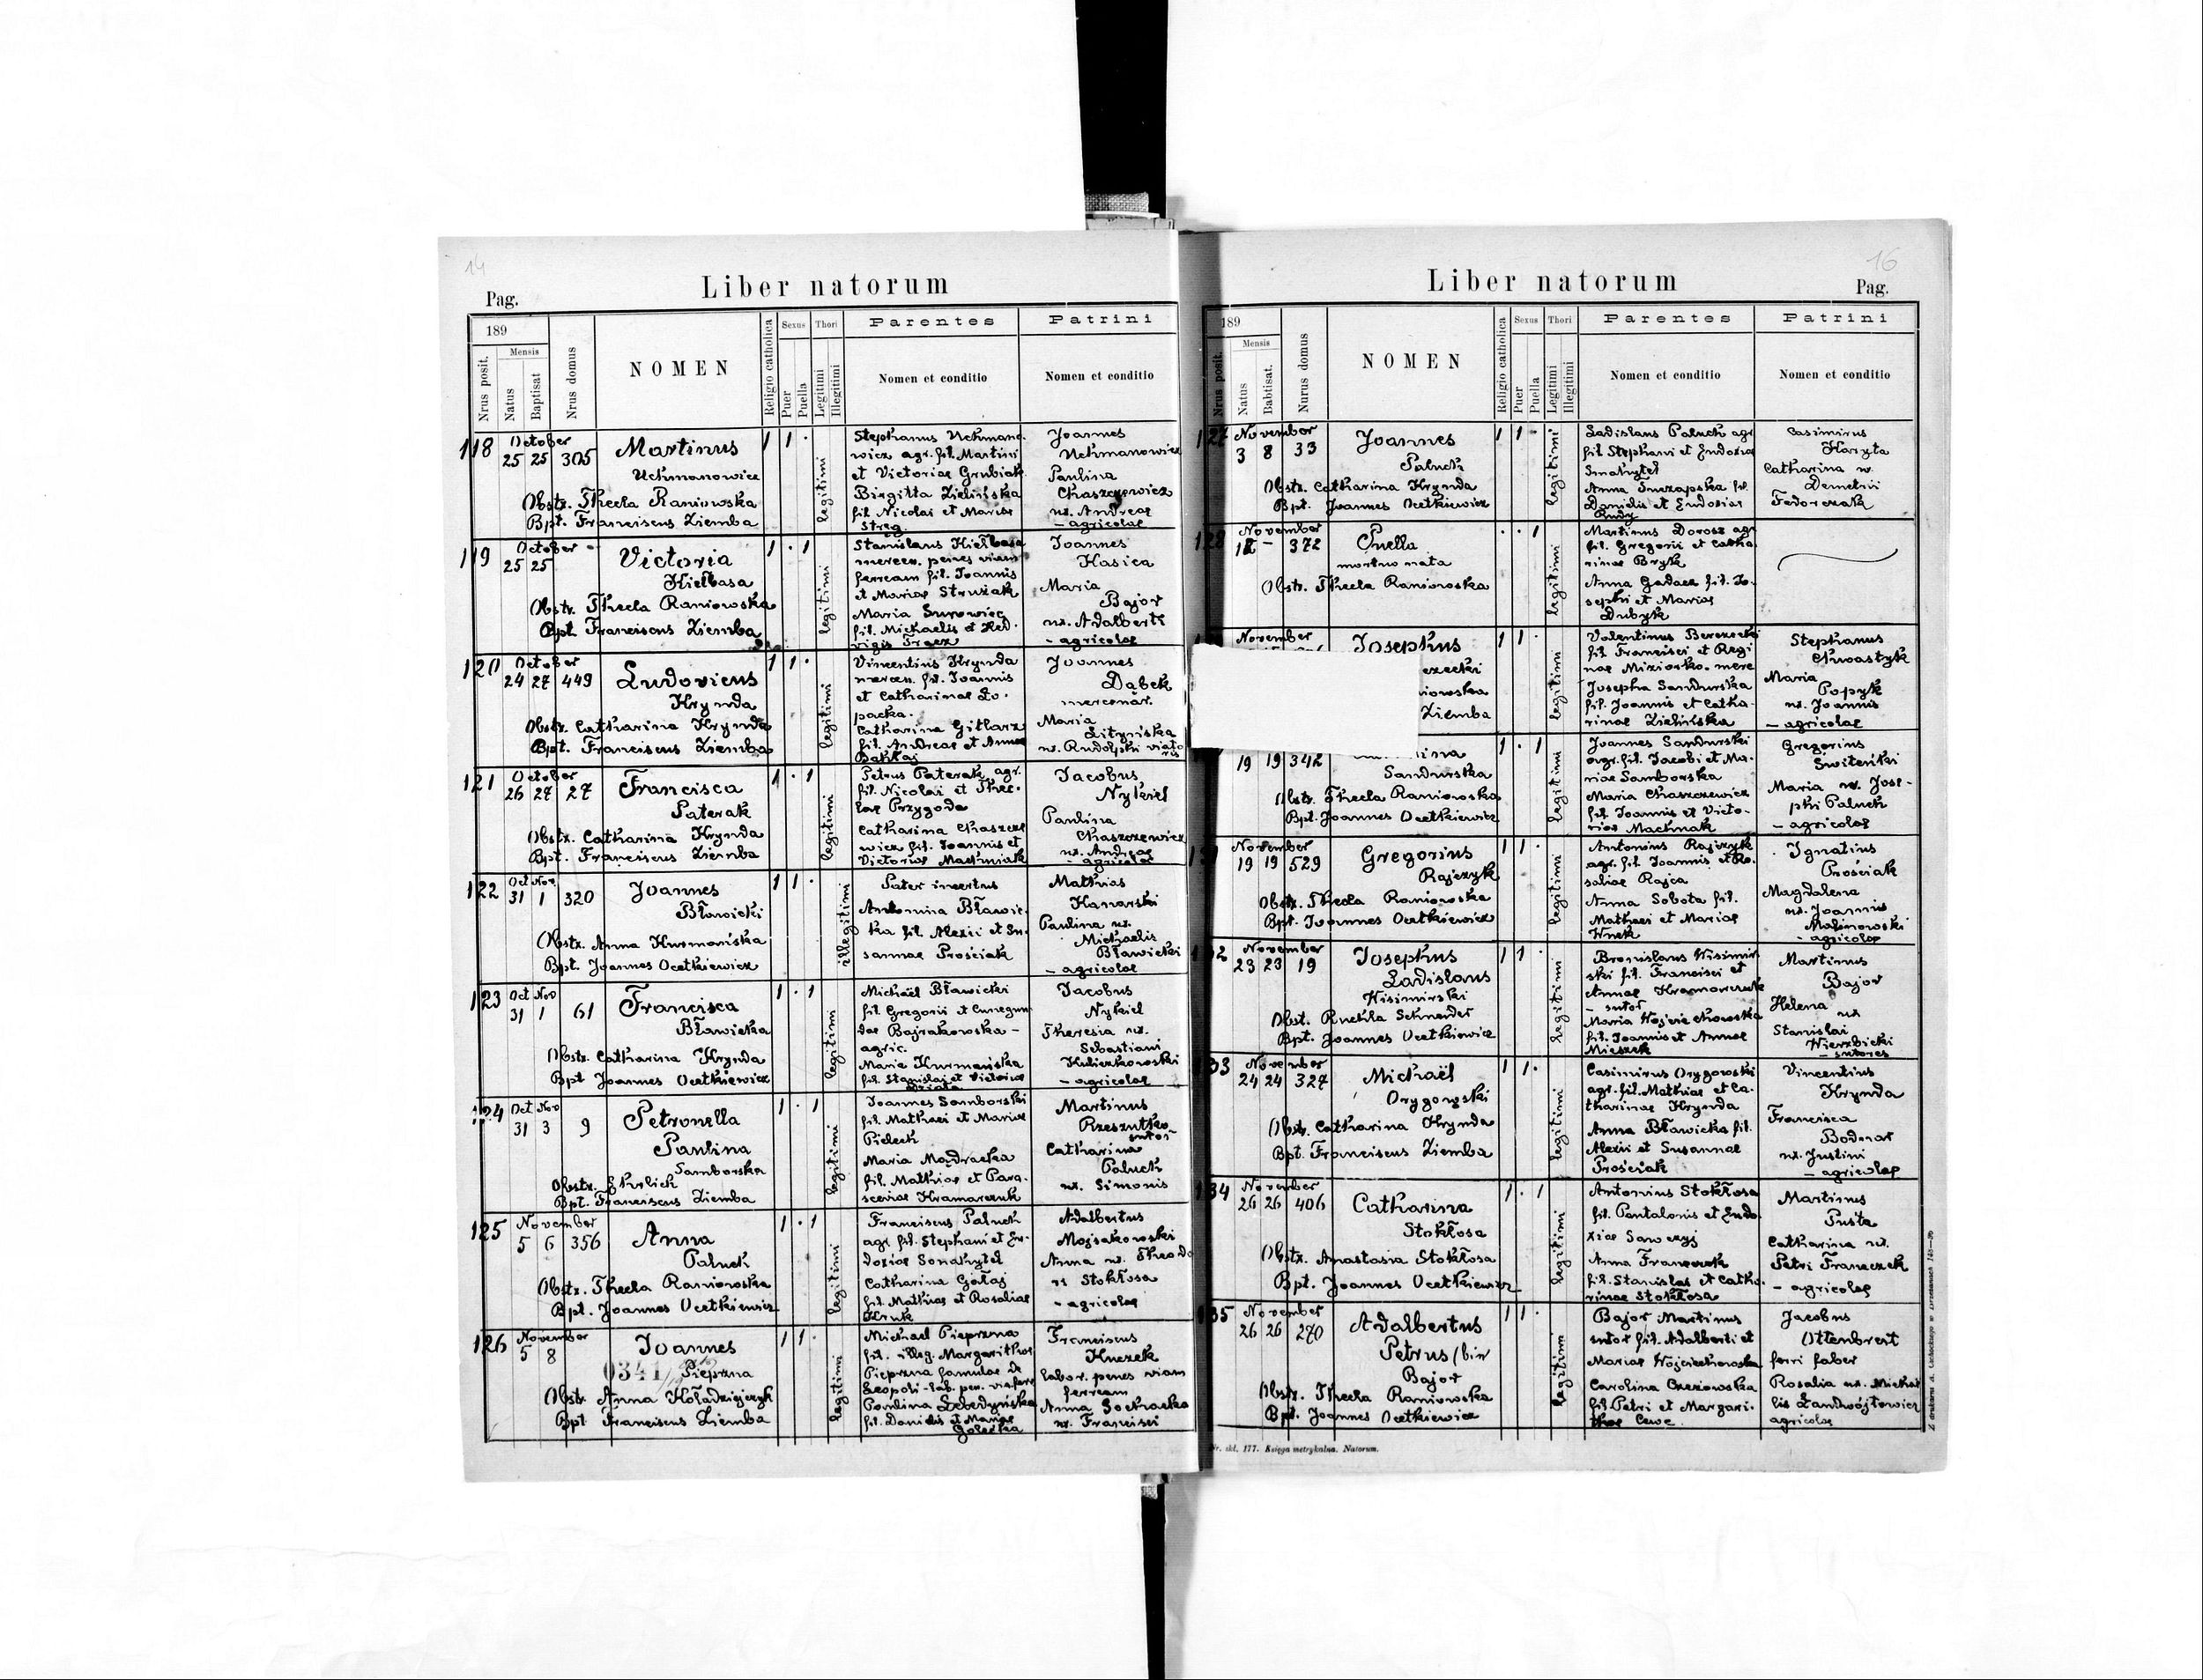 14
Liber natorum
Pag.
189
Mensis
Nrus posit.
Natus
Baptisat
Nrus domus
NOMEN
Religio catholica
Sexus
Puer
Puella
Thori
Legitimi
Illegitimi
Parentes
Nomen et conditio
Patrini
Nomen et conditio
118
October
25 25 305
Martinus
Uchmanowicz
Obstr. Thecla Raniowska
Bpt. Franciscus Ziemba
1 1 ·
legitimi
Stephanus Uchmano-
wicz agr. fil. Martini
et Victoriae Grubiak
Birgitta Zielińska
fil. Nicolai et Mariae
Streg
Joannes
Uchmanowicz
Paulina
Chaszczewicz
ux. Andreae
- agricolae
119
October
25 25
Victoria
Kiełbasa
Obstr. Thecla Raniowska
Bpt. Franciscus Ziemba
1 · 1
legitimi
Stanislaus Kiełbasa
mercen. penes viam
ferream fil. Joannis
et Mariae Struzak
Maria Surowiec
fil. Michaelis et Hed-
vigis Fracz
Joannes
Kasica
Maria
Bajor
ux. Adalberti
- agricolae
120
October
24 27 449
Ludovicus
Hrynda
Obstr. Catharina Hrynda
Bpt. Franciscus Ziemba
1 1 ·
legitimi
Vincentius Hrynda
mercen. fil. Joannis
et Catharinae Ło-
packa.
Catharina Gitlarz
fil. Andreae et Annae
Bakłaj
Joannes
Dąbek
mercenar.
Maria
Lityńska
ux. Rudolphi viato
ris
121
October
26 27 27
Francisca
Paterak
Obstr. Catharina Hrynda
Bpt. Franciscus Ziemba
1 · 1
legitimi
Petrus Paterak agr.
fil. Nicolai et Thec-
lae Przygoda
Catharina Chaszcze
wicz fil. Joannis et
Victoriae Machniak
Jacobus
Nykiel
Paulina
Chaszczewicz
ux. Andreae
- agricolae
122
Oct Nov
31 1 320
Joannes
Bławicki
Obstr. Anna Kurmańska
Bpt. Joannes Ocetkiewicz
1 1 ·
illegitimi
Pater incertus
Antonina Bławic-
ka fil. Alexii et Su-
sannae Prościak
Mathias
Kanarski
Paulina ux.
Michaelis
Bławicki
- agricolae
123
Oct Nov
31 1 61
Francisca
Bławicka
Obstr. Catharina Hrynda
Bpt Joannes Ocetkiewicz
1 · 1
legitimi
Michaël Bławicki
fil. Gregorii et Cunegun-
dae Bajrakowska -
agric.
Maria Kurmańska
fil. Stanislai et Victoriae
Jacobus
Nykiel
Theresia ux.
Sebastiani
Kuliczkowski
- agricolae
124
Oct Nov
31 3 9
Petronella
Paulina
Samborska
Obstr. Ehrlich
Bpt. Franciscus Ziemba
1 · 1
legitimi
Joannes Samborski
fil. Mathaei et Mariae
Pielech
Maria Mądracka
fil. Mathiae et Para-
sceviae Kramarczuk
Martinus
Rzeszutko
sutor
Catharina
Paluch
ux. Simonis
125
November
5 6 356
Anna
Paluch
Obstr. Thecla Raniowska
Bpt. Joannes Ocetkiewicz
1 · 1
legitimi
Franciscus Paluch
agr. fil. Stephani et Eu-
doxiae Smahytel
Catharina Gołąj
fil. Mathiae et Rosaliae
Kruk
Adalbertus
Mojsakowski
Anna ux. Theodo
ri Stokłosa
- agricolae
126
November
5 8
Joannes
Pieprzna
0341/
Obstr. Anna Koładziejczyk
Bpt. Franciscus Ziemba
1 1 ·
legitimi
Michael Pieprzna
fil. illeg. Margarithae
Pieprzna famulae De
Leopoli - lab. pen. via ferr
Paulina Lebedyńska
fil. Danielis et Mariae
Golecka
Franciscus
Knezek
labor. penes viam
ferream
Anna Sochacka
ux. Francisci
16
Liber natorum
Pag.
189
Mensis
Nrus posit.
Natus
Babtisat.
Nurus domus
NOMEN
Religio catholica
Sexus
Puer
Puella
Thori
Legitimi
Illegitimi
Parentes
Nomen et conditio
Patrini
Nomen et conditio
127
November
3 8 33
Joannes
Paluch
Obstr. Catharina Hrynda
Bpt. Joannes Ocetkiewicz
1 1 ·
legitimi
Ladislaus Paluch agr
fil Stephani et Eudoxiae
Smahytel
Anna Śnieżapska fil.
Danielis et Eudoxiae
Rudy
Casimirus
Haryta
Catharina ux.
Demetrii
Fedorczak
128
November
12 - 372
Puella
mortuo nata
Obstr. Thecla Raniowska
· · 1
legitimi
Martinus Dorosz agr
fil. Gregorii et Catha-
rinae Bryk
Anna Gadacz fil. Jo-
sephi et Mariae
Dubyk
November
Josephus
czecki
iowska
Ziemba
1 1 ·
legitimi
Valentinus Berezecki
fil. Francisci et Regi
nae Miziorko. merc
Josepha Sandurska
fil. Joannis et Catha-
rinae Zielińska
Stephanus
Chwastyk
Maria
Popyk
ux. Joannis
- agricolae
19 19 342
Sandurska
Obstr. Thecla Raniowska
Bpt. Joannes Ocetkiewicz
1 · 1
legitimi
Joannes Sandurski
agr. fil. Jacobi et Ma-
riae Samborska
Maria Chaszczewicz
fil. Joannis et Victo-
riae Machnak
Gregorius
Świteński
Maria ux. Jose-
phi Paluch
- agricolae
131
November
19 19 529
Gregorius
Rajczyk
Obstr. Thecla Raniowska
Bpt. Joannes Ocetkiewicz
1 1 ·
legitimi
Antonius Rajczyk
agr. fil. Joannis et Ro-
saliae Rajca
Anna Sobota fil.
Mathaei et Mariae
Wnek
Ignatius
Prościak
Magdalena
ux. Joannis
Malinowski
- agricolae
132
November
23 23 19
Josephus
Ladislaus
Wisimirski
Obst. Ruchla Schneider
Bpt. Joannes Ocetkiewicz
1 1 ·
legitimi
Bronislaus Wisimir
ski fil. Francisci et
Annae Kramarczuk
- sutor
Maria Wojciechowska
fil. Joannis et Annae
Mieszek
Martinus
Bajor
Helena ux
Stanislai
Wierzbicki
- sutores
133
November
24 24 327
Michaël
Drygowski
Obstr. Catharina Hrynda
Bpt. Franciscus Ziemba
1 1 ·
legitimi
Casimirus Drygowski
agr. fil. Mathiae et Ca-
tharinae Hrynda
Anna Bławicka fil.
Alexii et Susannae
Prościak
Vincentius
Hrynda
Francisca
Bodnar
ux. Justini
- agricolae
134
November
26 26 406
Catharina
Stokłosa
Obstr. Anastasia Stokłosa
Bpt. Joannes Ocetkiewicz
1 · 1
legitimi
Antonius Stokłosa
fil. Pantalonis et Eudo-
xiae Sawczyj
Anna Franczuk
fil. Stanislai et Catha-
rinae Stokłosa
Martinus
Pusta
Catharina ux.
Petri Franczek
- agricolae
135
November
26 26 270
Adalbertus
Petrus (bin
Bajor
Obstr. Thecla Raniowska
Bpt. Joannes Ocetkiewicz
1 1 ·
legitimi
Bajor Martinus
sutor fil. Adalberti et
Mariae Wojciechowska
Carolina Czerowska
fil. Petri et Margari-
thae Cewe
Jacobus
Ottenbreit
ferri faber
Rosalia ux. Michae
lis Landwójtowicz
agricolae
Nr. skł. 177. Księga metrykalna. Natorum.